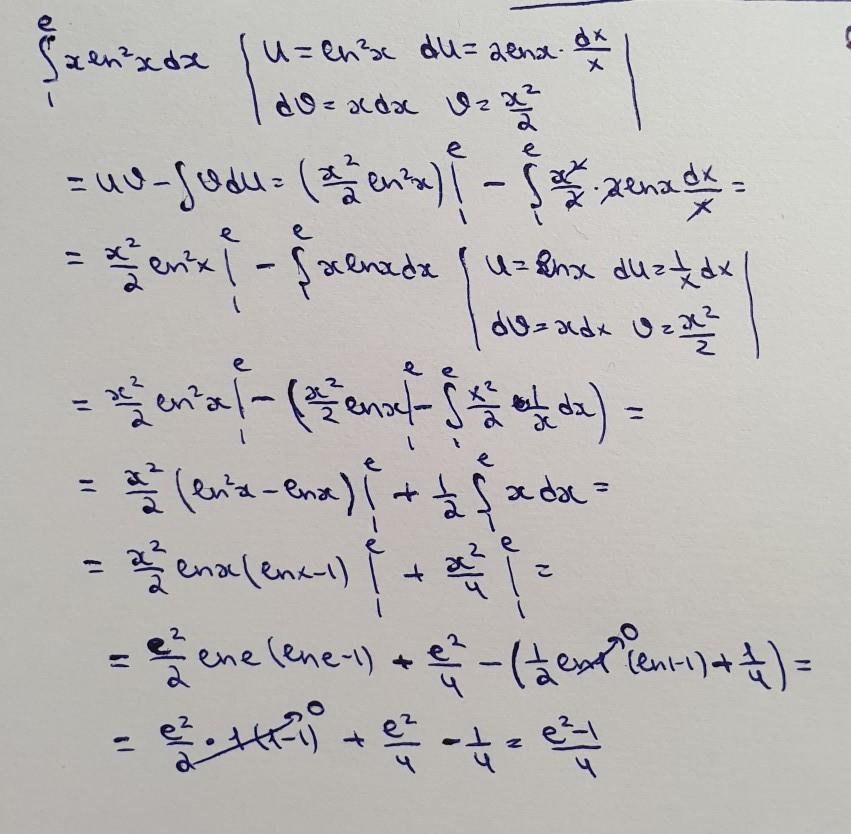 ∫₁ᵉ x ln²x dx | u = ln²x du = 2lnx · dx/x
dv = x dx v = x²/2 |
= uv - ∫ v du = (x²/2 ln²x) |₁ᵉ - ∫₁ᵉ x²/2 · 2lnx dx/x =
= x²/2 ln²x |₁ᵉ - ∫₁ᵉ x lnx dx | u = lnx du = 1/x dx |
dv = x dx v = x²/2
= x²/2 ln²x |₁ᵉ - (x²/2 lnx |₁ᵉ - ∫₁ᵉ x²/2 · 1/x dx) =
= x²/2 (ln²x - lnx) |₁ᵉ + 1/2 ∫₁ᵉ x dx =
= x²/2 lnx (lnx - 1) |₁ᵉ + x²/4 |₁ᵉ =
= e²/2 lne (lne - 1) + e²/4 - (1/2 ln1 → 0 (ln1 - 1) + 1/4) =
= e²/2 · 1 (1 - 1) → 0 + e²/4 - 1/4 = e²-1/4